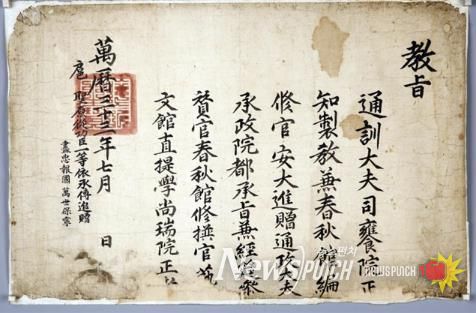 教旨
通訓大夫司饔院正
知製教兼春秋館編
修官安大進贈通政大夫
承政院都承旨兼經筵參
贊官春秋館修撰官藝
文館直提學尚瑞院正者
萬曆三十三年七月 日
扈聖原從功臣一等依承傳追贈
盡忠報國 萬世保寧
NEWSPUNCH